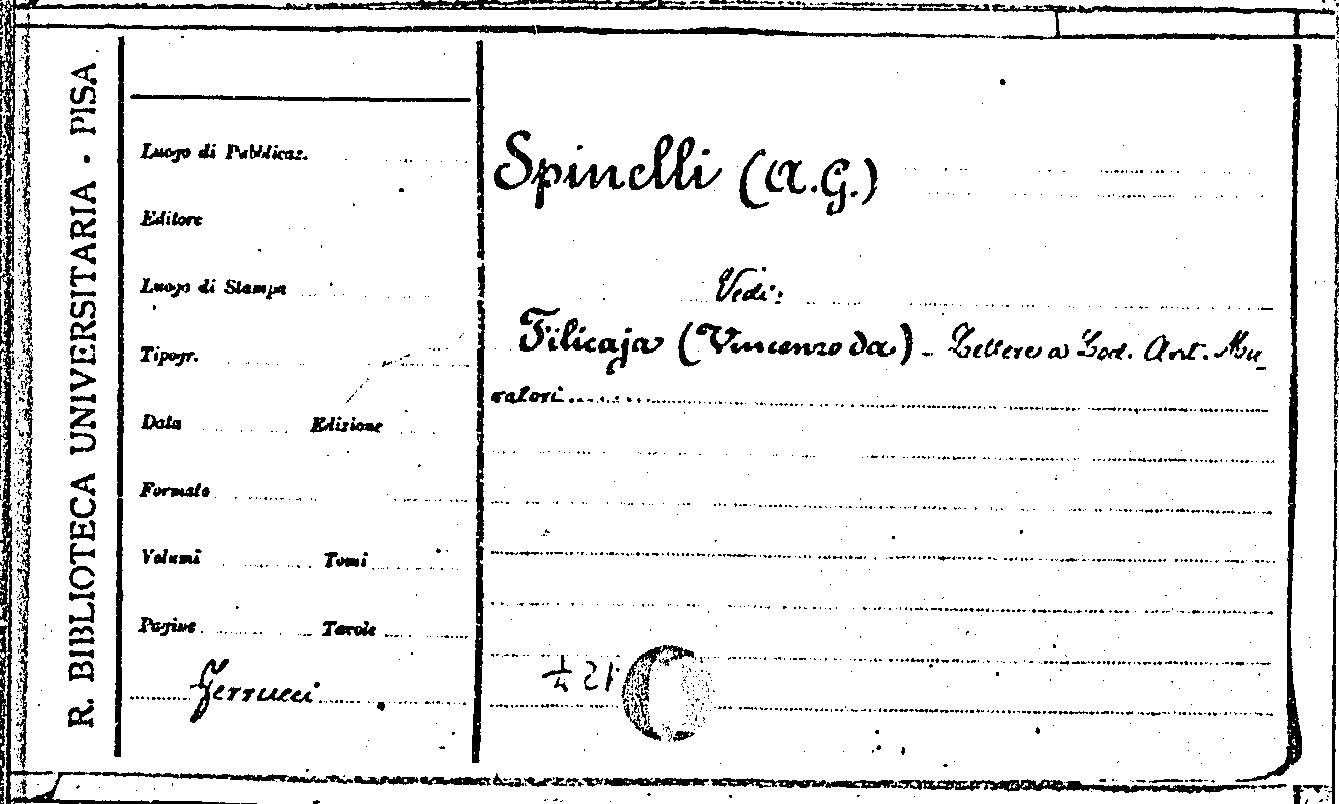 R. BIBLIOTECA UNIVERSITARIA - PISA
Luogo di Pubblicaz.
Editore
Luogo di Stampa
Tipogr.
Data Edizione
Formato
Volumi Tomi
Pagine Tavole
Ferrucci
Spinelli (A.G.)
Vedi:
Filicaja (Vincenzo da) - Lettere a Lod. Ant. Mu-
ratori.......